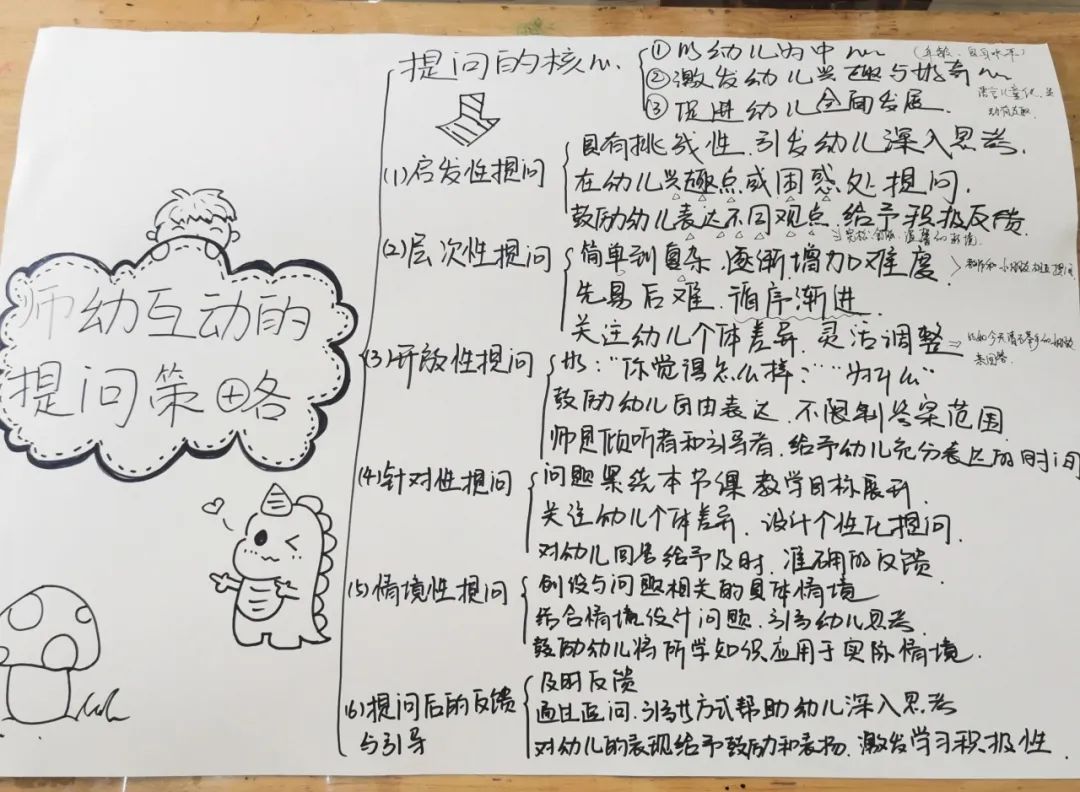 师幼互动的
提问策略
提问的核心
①以幼儿为中心
②激发幼儿兴趣与好奇心
③促进幼儿全面发展
(1)启发性提问
具有挑战性、引发幼儿深入思考.
在幼儿兴趣点或困惑处提问.
鼓励幼儿表达不同观点.给予积极反馈
(2)层次性提问
简单到复杂,逐渐增加难度
先易后难.循序渐进
关注幼儿个体差异.灵活调整
(3)开放性提问
如:“你觉得怎么样?”“为什么”
鼓励幼儿自由表达.不限制答案范围
师是倾听者和引导者,给予幼儿充分表达的时间
(4)针对性提问
问题紧绕本节课教学目标展开.
关注幼儿个体差异、设计个性化提问.
对幼儿回答给予及时、准确的反馈.
(5)情境性提问
创设与问题相关的具体情境
结合情境设计问题.引导幼儿思考.
鼓励幼儿将所学知识应用于实际情境.
(6)提问后的反馈
与引导
及时反馈
通过追问、引导方式帮助幼儿深入思考
对幼儿的表现给予鼓励和表扬、激发学习积极性.